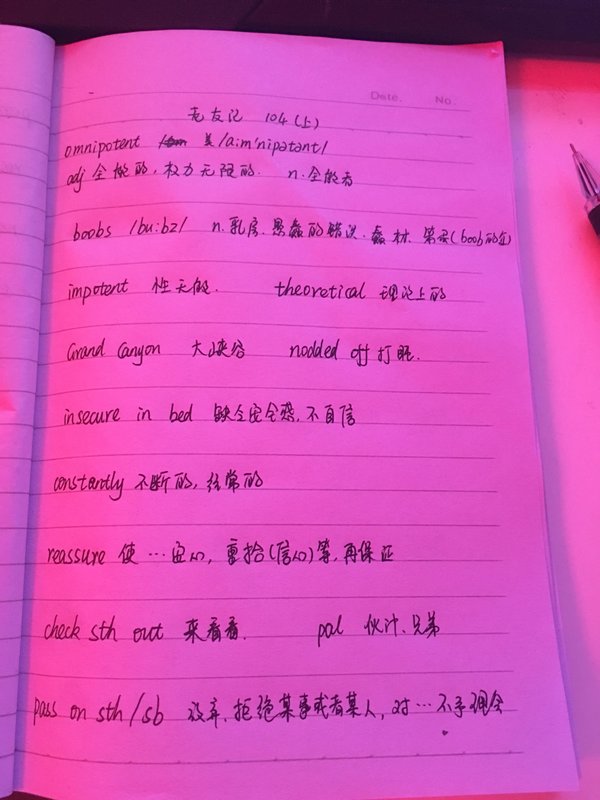 Date. No.
老友记 104(上)
omnipotent 美/a:m'nipətənt/
adj 全能的,权力无限的. n.全能者
boobs /bu:bz/ n.乳房.愚蠢的错误.蠢材.笨蛋(boob的复)
impotent 性无能. theoretical 理论上的
Grand Canyon 大峡谷 nodded off 打盹.
insecure in bed 缺乏安全感,不自信
constantly 不断的,经常的
reassure 使…安心,重拾(信心)等,再保证
check sth out 来看看. pal 伙计、兄弟
pass on sth/sb 放弃,拒绝某事或者某人,对…不予理会